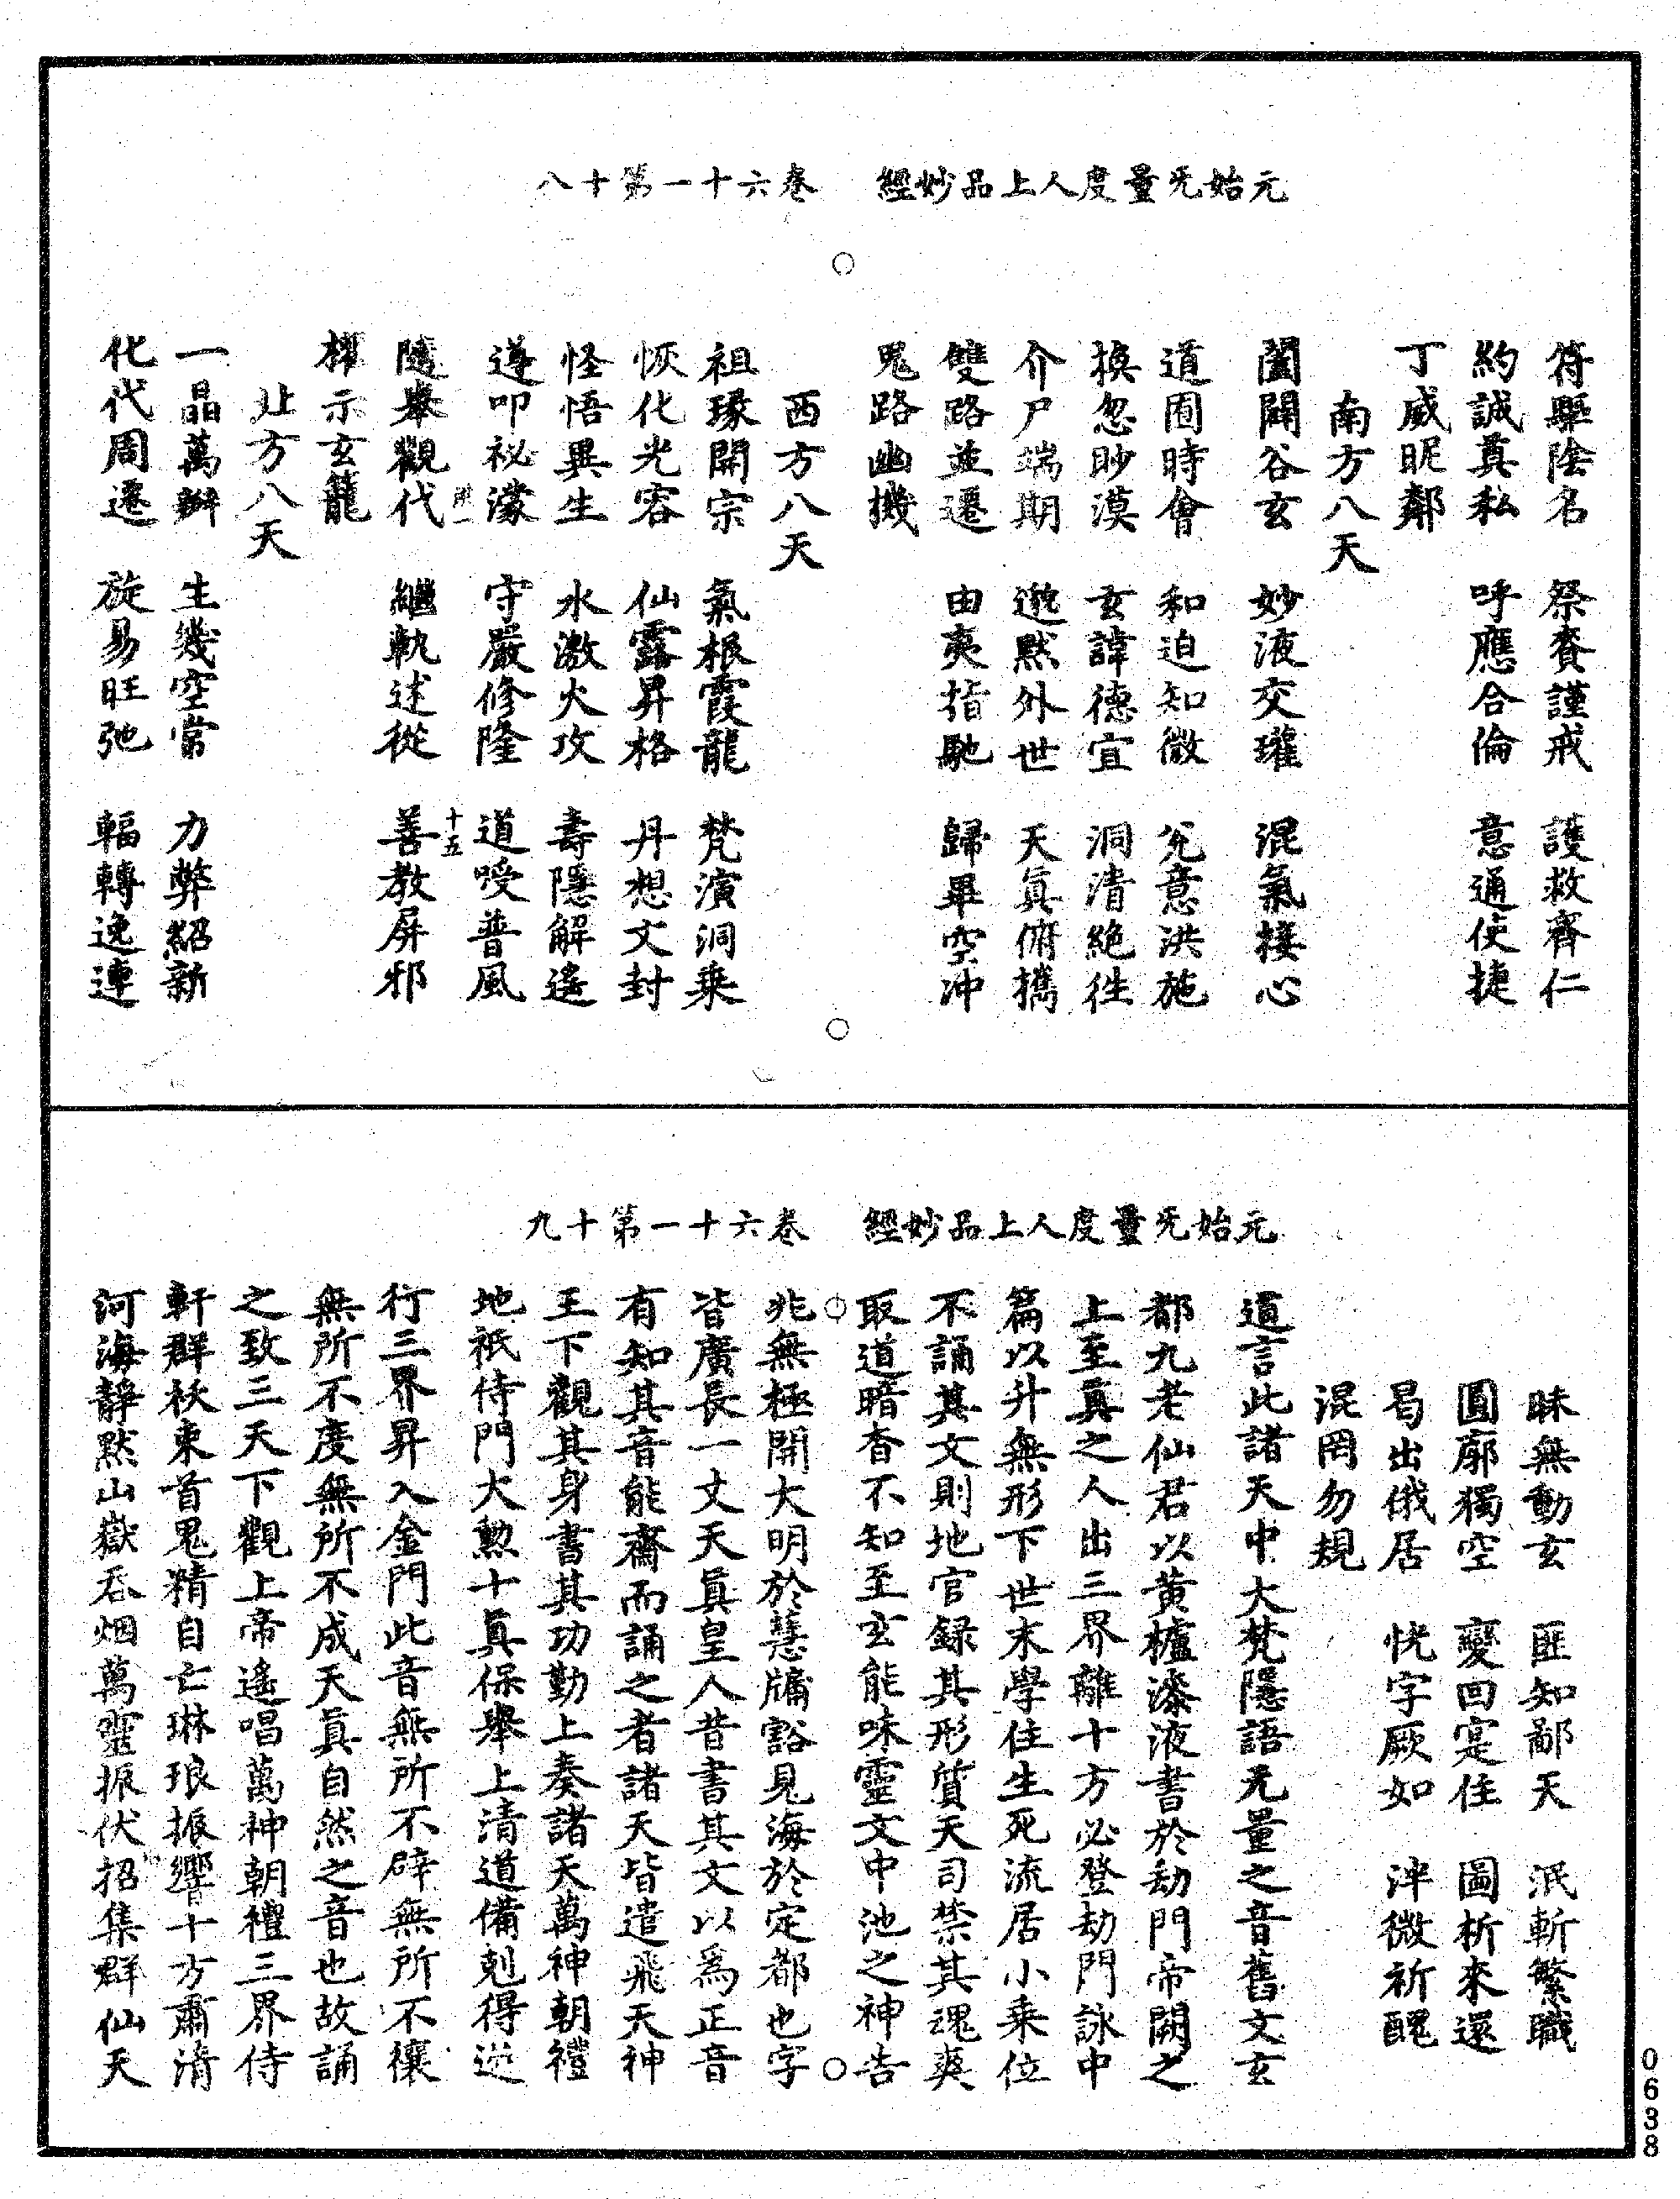 元始无量度人上品妙經　卷六十一第十八
符驅陰名　祭賚謹戒　護救齊仁
約誠真私　呼應合倫　意通使捷
丁威昵鄰
南方八天
闔闢谷玄　妙液交瓘　混氣接心
道囿時會　和迫知微　兊意洪施
換忽眇漠　玄諱德宜　洞清絶徃
介尸端期　邈默外世　天真俯攜
雙路並遷　由夷指馳　歸畢空冲
鬼路幽機
西方八天
祖瑑開宗　氣根霞龍　梵演洞乗
恢化光容　仙露昇格　丹想文封
怪悟異生　水激火攻　壽隱解遙
遵叩祕濛　守嚴修隆　道受普風
十五
隨舉觀代　繼軌述從　善教屏邪
櫂示玄籠
北方八天
一晶萬辦　生幾空常　力弊紹新
化代周遷　旋易旺弛　輻轉逸連
元始无量度人上品妙經　卷六十一第十九
昧無動玄　匪知鄙天　泯斬繁職
圓廓獨空　變回寔住　圖析來還
曷出俄居　恍字厥如　泮微祈醜
混罔勿規
道言此諸天中大梵隱語无量之音舊文玄
都九老仙君以黄櫨漆液書於劫門帝闕之
上至真之人出三界離十方必登劫門詠中
篇以升無形下世末學住生死流居小乗位
不誦其文則地官録其形質天司禁其魂爽
取道暗杳不知至玄能味靈文中池之神告
兆無極開大明於慧牖豁見海於定都也字
皆廣長一丈天真皇人昔書其文以爲正音
有知其音能齋而誦之者諸天皆遣飛天神
王下觀其身書其功勤上奏諸天萬神朝禮
地祇侍門大勲十真保舉上清道備剋得遊
行三界昇入金門此音無所不辟無所不禳
無所不度無所不成天真自然之音也故誦
之致三天下觀上帝遙唱萬神朝禮三界侍
軒群祅束首鬼精自亡琳琅振響十方肅清
河海靜默山嶽吞烟萬靈振伏招集群仙天
0638